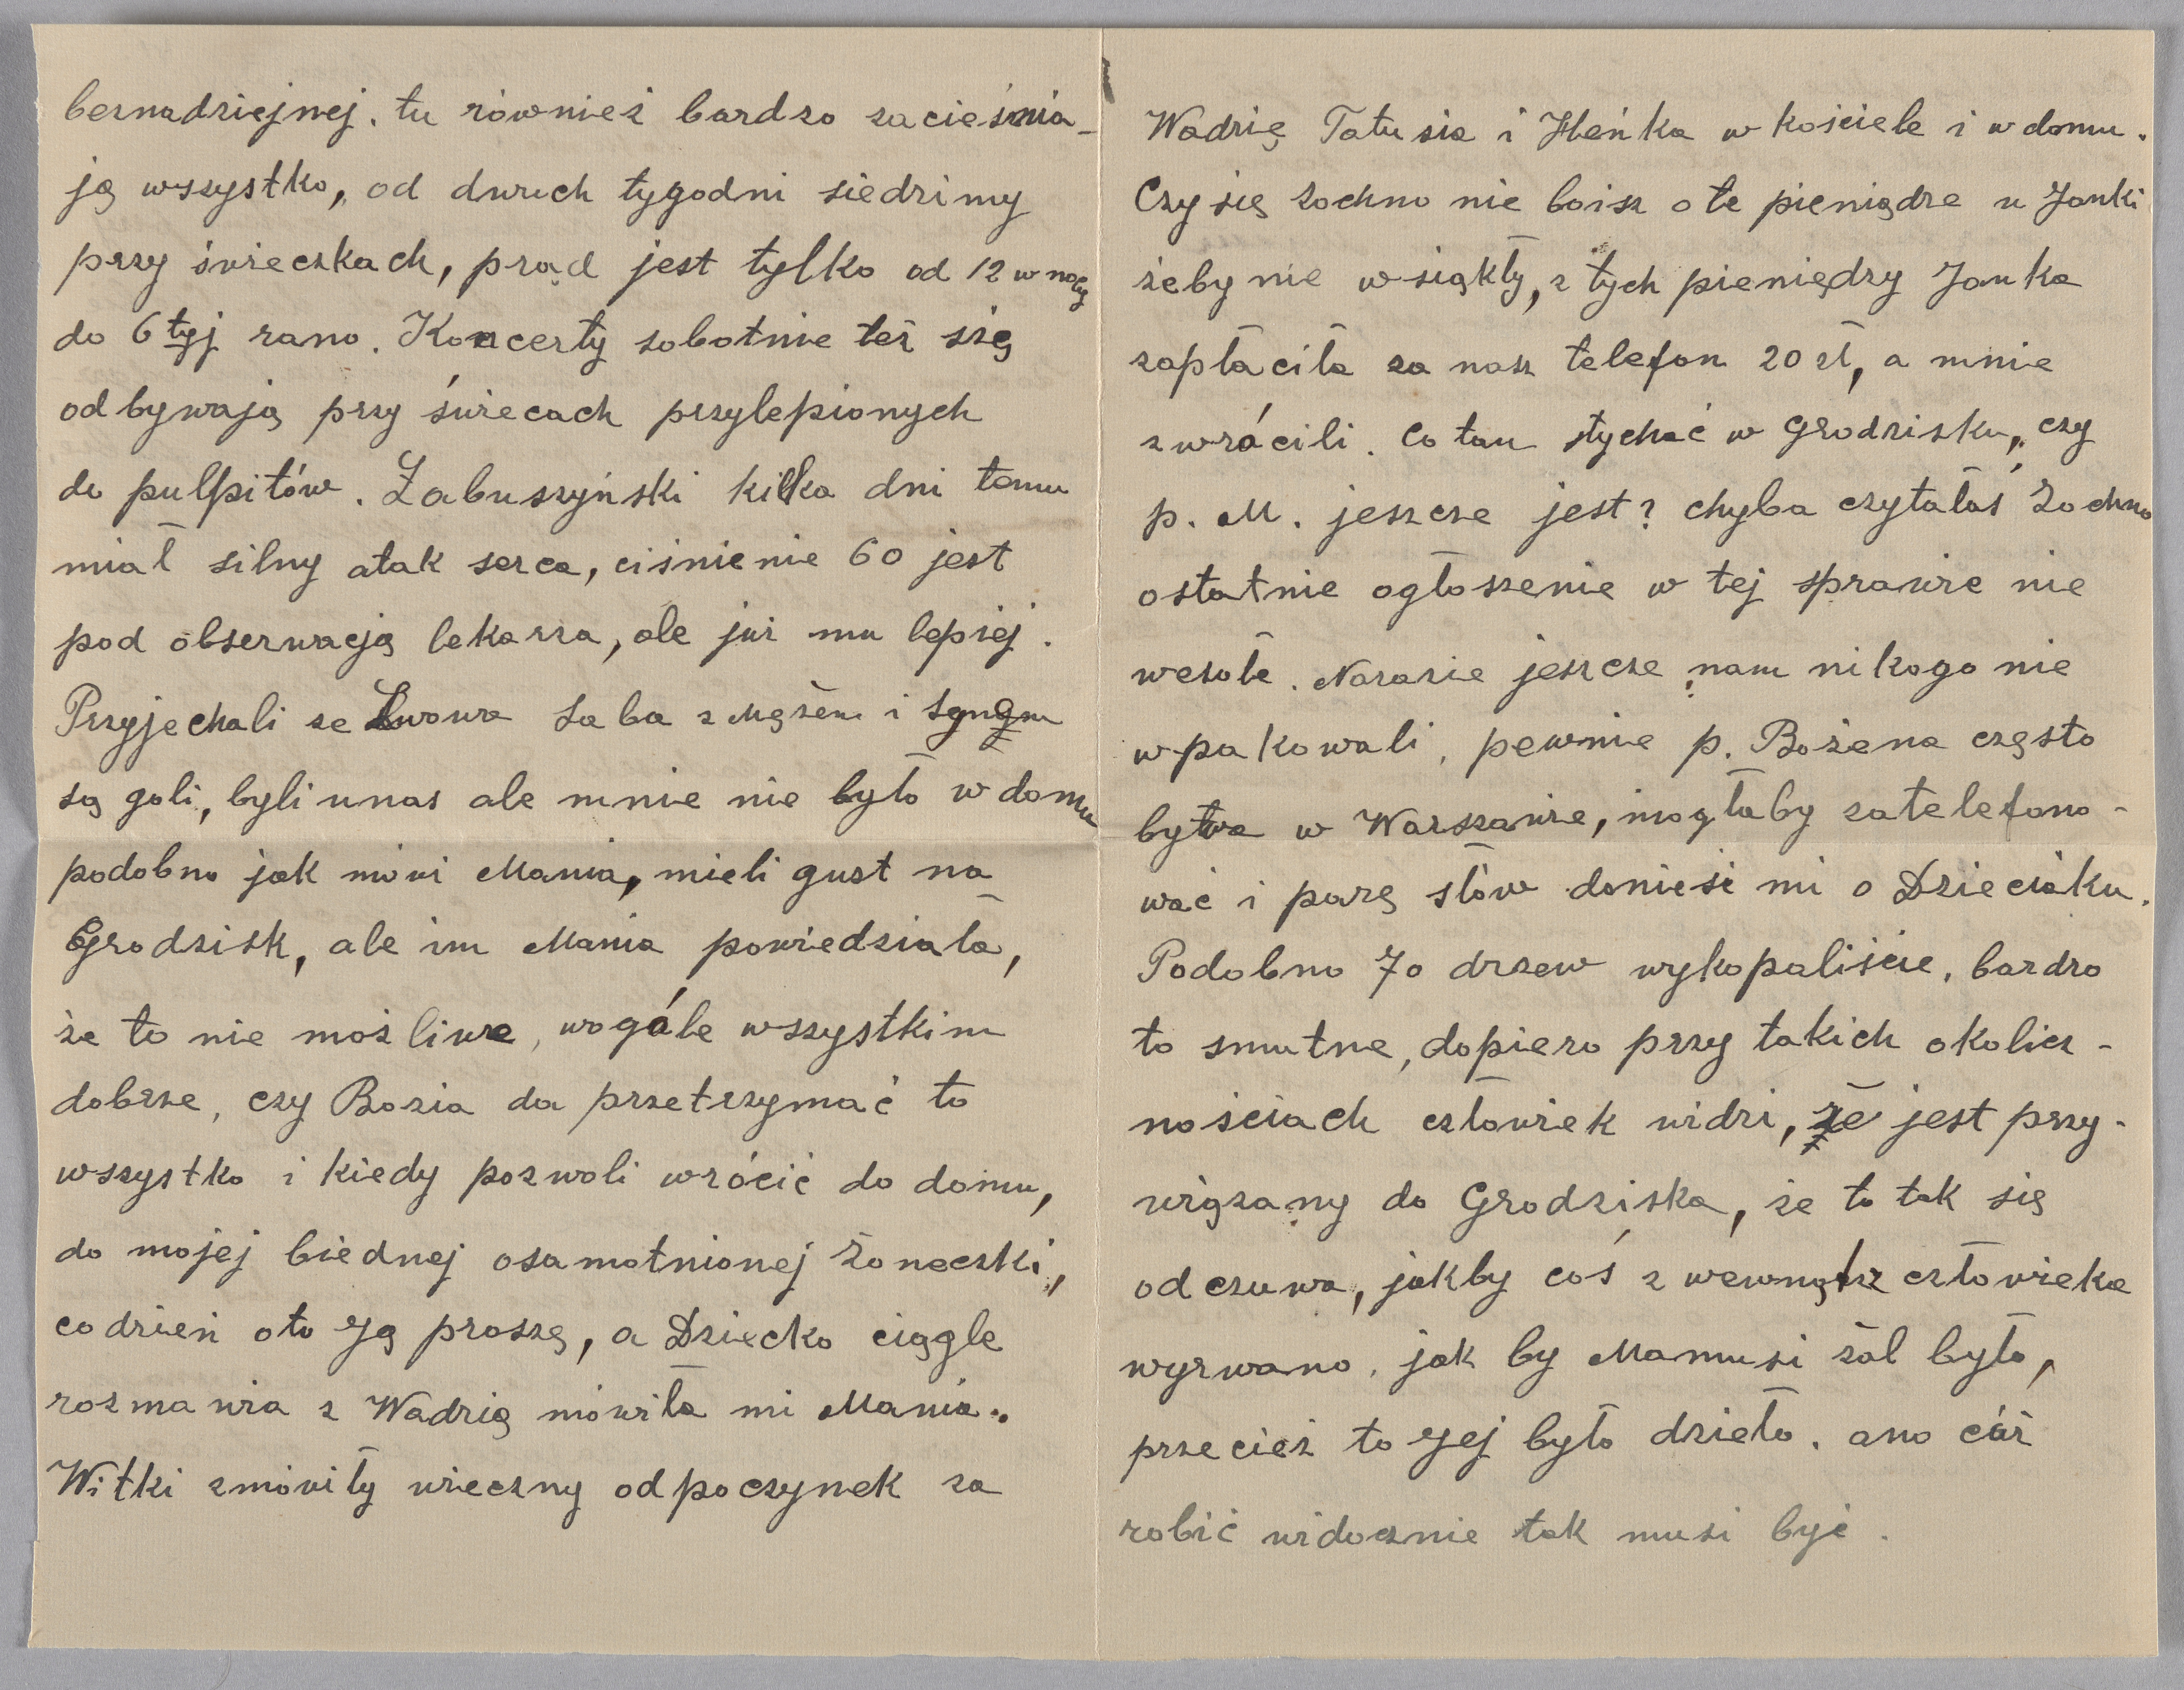 beznadziejnej. tu również bardzo zacieśnia-
ją wszystko, od dwuch tygodni siedzimy
przy świeczkach, prąd jest tylko od 12 w nocy
do 6 tej rano. Koncerty sobotnie też się
odbywają przy świecach przylepionych
do pulpitów. Żabuszyński kilka dni temu
miał silny atak serca, ciśnienie 60 jest
pod obserwacją lekarza, ale już mu lepiej.
Przyjechali ze Lwowa Saba z mężem i synem
są goli, byli u nas ale mnie nie było w domu
podobno jak mówi Mania, mieli gust na
Grodzisk, ale im Mania powiedziała,
że to nie możliwe, wogóle wszystkim
dobrze, czy Bozia da przetrzymać to
wszystko i kiedy pozwoli wrócić do domu,
do mojej biednej osamotnionej Żoneczki,
codzień oto Ją proszę, a Dziecko ciągle
rozmawia z Wadzią mówiła mi Mania.
Witki zmówiły wieczny odpoczynek za
Wadzię Tatusia i Heńka w kościele i w domu.
Czy się Żochno nie boisz o te pieniądze u Janki
żeby nie wsiąkły, z tych pieniędzy Janka
zapłaciła za nasz telefon 20 zł, a mnie
zwrócili. Co tam słychać w Grodzisku, czy
p. M. jeszcze jest? chyba czytałaś Żochno
ostatnie ogłoszenie w tej sprawie nie
wesołe. Narazie jeszcze nam nikogo nie
wpakowali, pewnie p. Bożena często
bywa w Warszawie, mogłaby zatelefono-
wać i parę słów donieść mi o Dzieciaku.
Podobno 70 drzew wykopaliście, bardzo
to smutne, dopiero przy takich okolicz-
nościach człowiek widzi, że jest przy-
wiązany do Grodziska, że to tak się
odczuwa, jakby coś z wewnątrz człowieka
wyrwano, jak by Mamusi żal było,
przecież to Jej było dzieło. ano cóż
robić widocznie tak musi być.